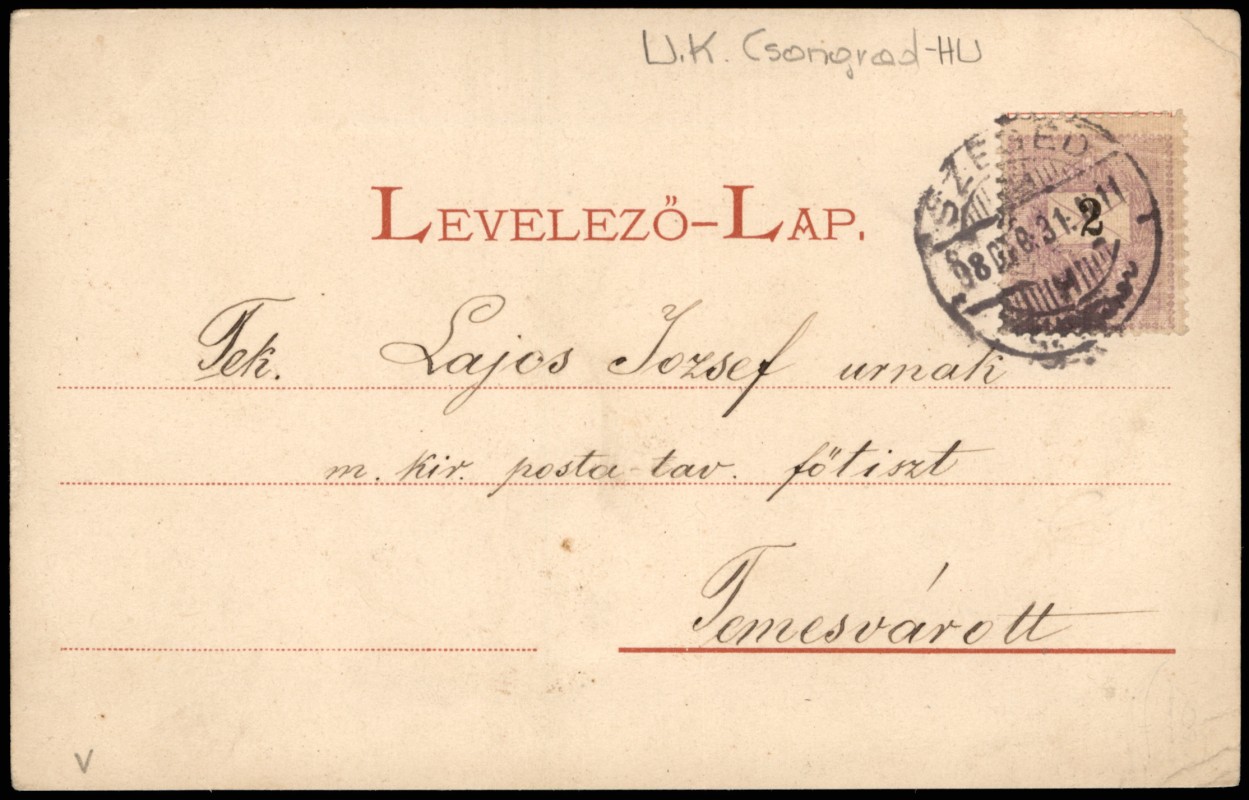 U.K. Csongrad-HU
SZEGED
2
LEVELEZŐ-LAP.
Tek. Lajos József urnak
m. kir. posta tav. főtiszt
Temesvárott
V